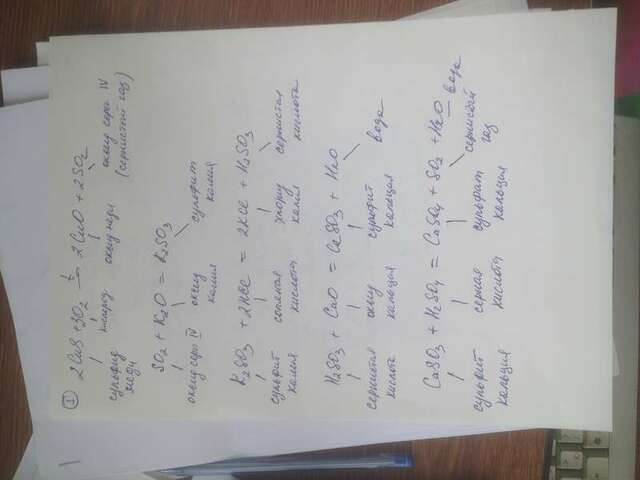 1
2CuS + 3O2 t→ 2CuO + 2SO2
сульфид меди кислород оксид меди оксид серы IV (сернистый газ)
SO2 + K2O = K2SO3
оксид серы IV оксид калия сульфит калия
K2SO3 + 2HCl = 2KCl + H2SO3
сульфит калия соляная кислота хлорид калия сернистая кислота
H2SO3 + CaO = CaSO3 + H2O
сернистая кислота оксид кальция сульфит кальция вода
CaSO3 + H2SO4 = CaSO4 + SO2 + H2O
сульфит кальция серная кислота сульфат кальция сернистый газ вода